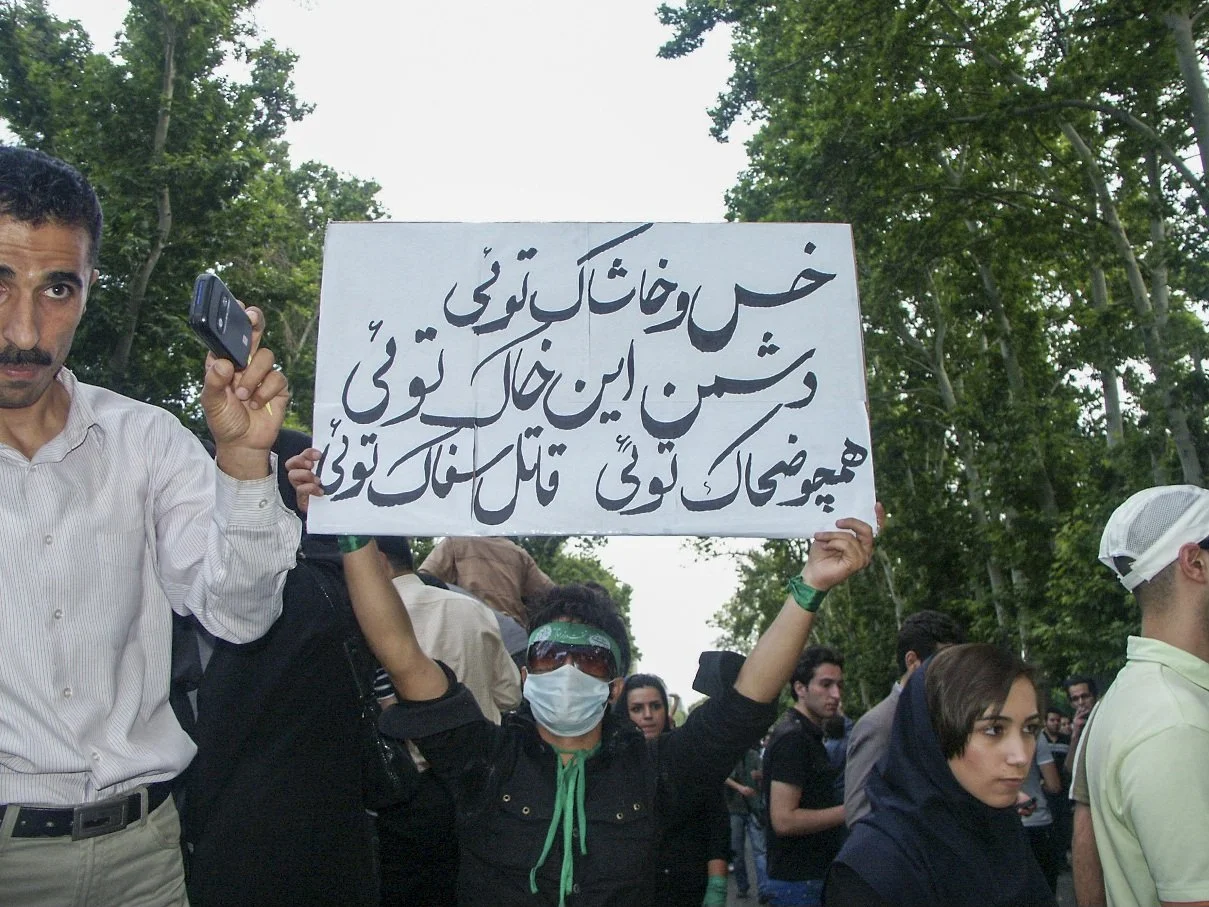 خس و خاشاک توئی
دشمن این خاک توئی
همچو ضحاک توئی قاتل سفاک توئی